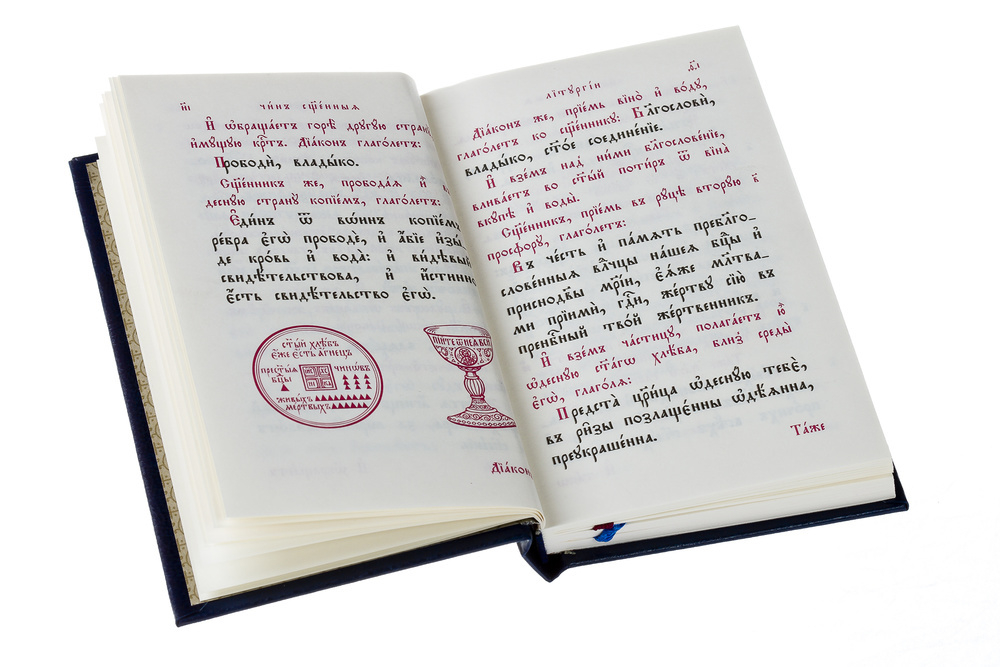 чи́нъ сщ҃е́нныѧ
И҆ ѡ҆браща́етъ горѣ̀ другу́ю стран
и҆мущую крⷭ҇тъ. Дїа́конъ глаго́летъ:
Прободѝ, влады́ко.
Сщ҃е́нникъ же, пробода́ѧ и҆̀
десну́ю страну̀ копїе́мъ, глаго́летъ:
Е҆ди́нъ ѿ во́инъ копїе́мъ
ре́бра є҆гѡ̀ прободѐ, и҆ а҆́бїе и҆зы́
де кро́вь и҆ вода̀: и҆ ви́дѣвы
свидѣ́тельствова, и҆ и҆́стинно
є҆́сть свидѣ́тельство є҆гѡ̀.
ст҃ы́й хлѣ́бъ
є҆́же є҆́сть а҆́гнецъ
прест҃ы́ѧ
бцⷣы
чинѡ́въ
живы́хъ
ме́ртвыхъ
Дїа́кон
літургі́и
Дїа́конъ же, прїе́мъ вїно̀ и҆ во́ду,
глаго́летъ ко сщ҃е́ннику: Бл҃гословѝ,
влады́ко, ст҃о́е соедине́нїе.
И҆ взе́мъ над ни́ми бл҃гослове́нїе,
влива́етъ во ст҃ы́й поти́ръ ѿ вїна̀
вку́пѣ и҆ воды̀.
Сщ҃е́нникъ, прїе́мъ въ ру́цѣ втору́ю
просфору̀, глаго́летъ:
Въ че́сть и҆ па́мѧть пребл҃го_
слове́нныѧ влⷣчцы на́шеѧ бцⷣы и҆
приснодв҃ы мр҃і́и, є҆ѧ́же мл҃тва_
ми прїимѝ, гдⷭ҇и, же́ртву сїю̀ въ
пренбⷭ҇ный тво́й же́ртвенникъ.
И҆ взе́мъ части́цу, полага́етъ ю҆̀
ѡ҆десну́ю ст҃а́гѡ хлѣ́ба, бли́з среды̀
є҆гѡ̀, глаго́лѧ:
Предста̀ цр҃и́ца ѡ҆десну́ю тебє̀,
въ ри́зы позлаще́нны ѡ҆дѣ́ѧнна,
преукраше́нна.
Та́же